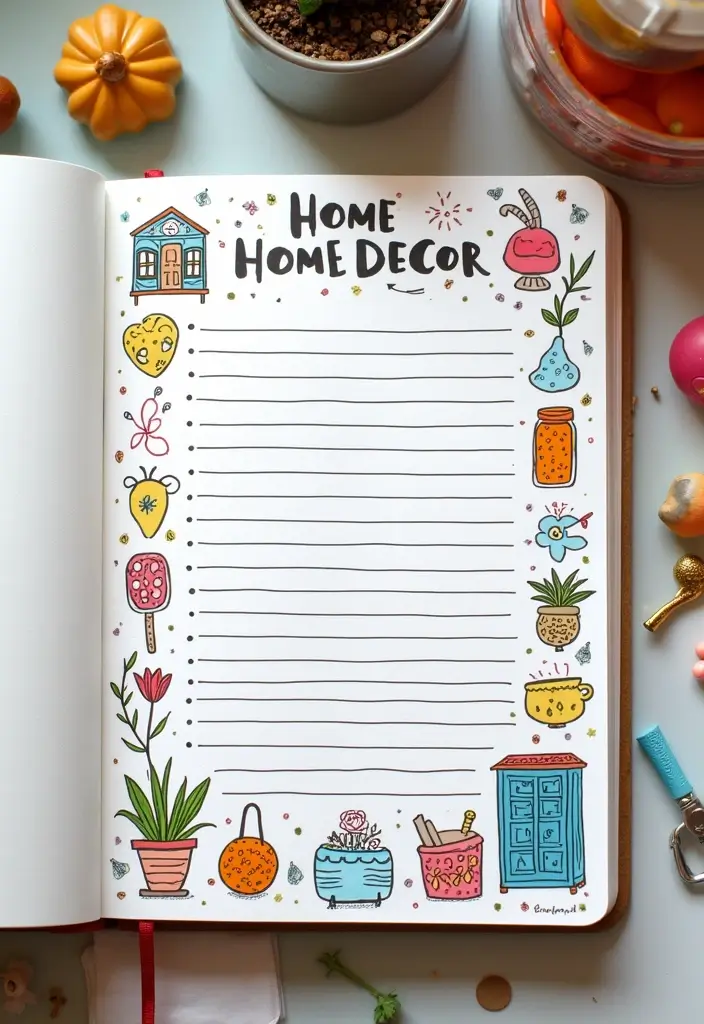 HOME
HOME DECOR